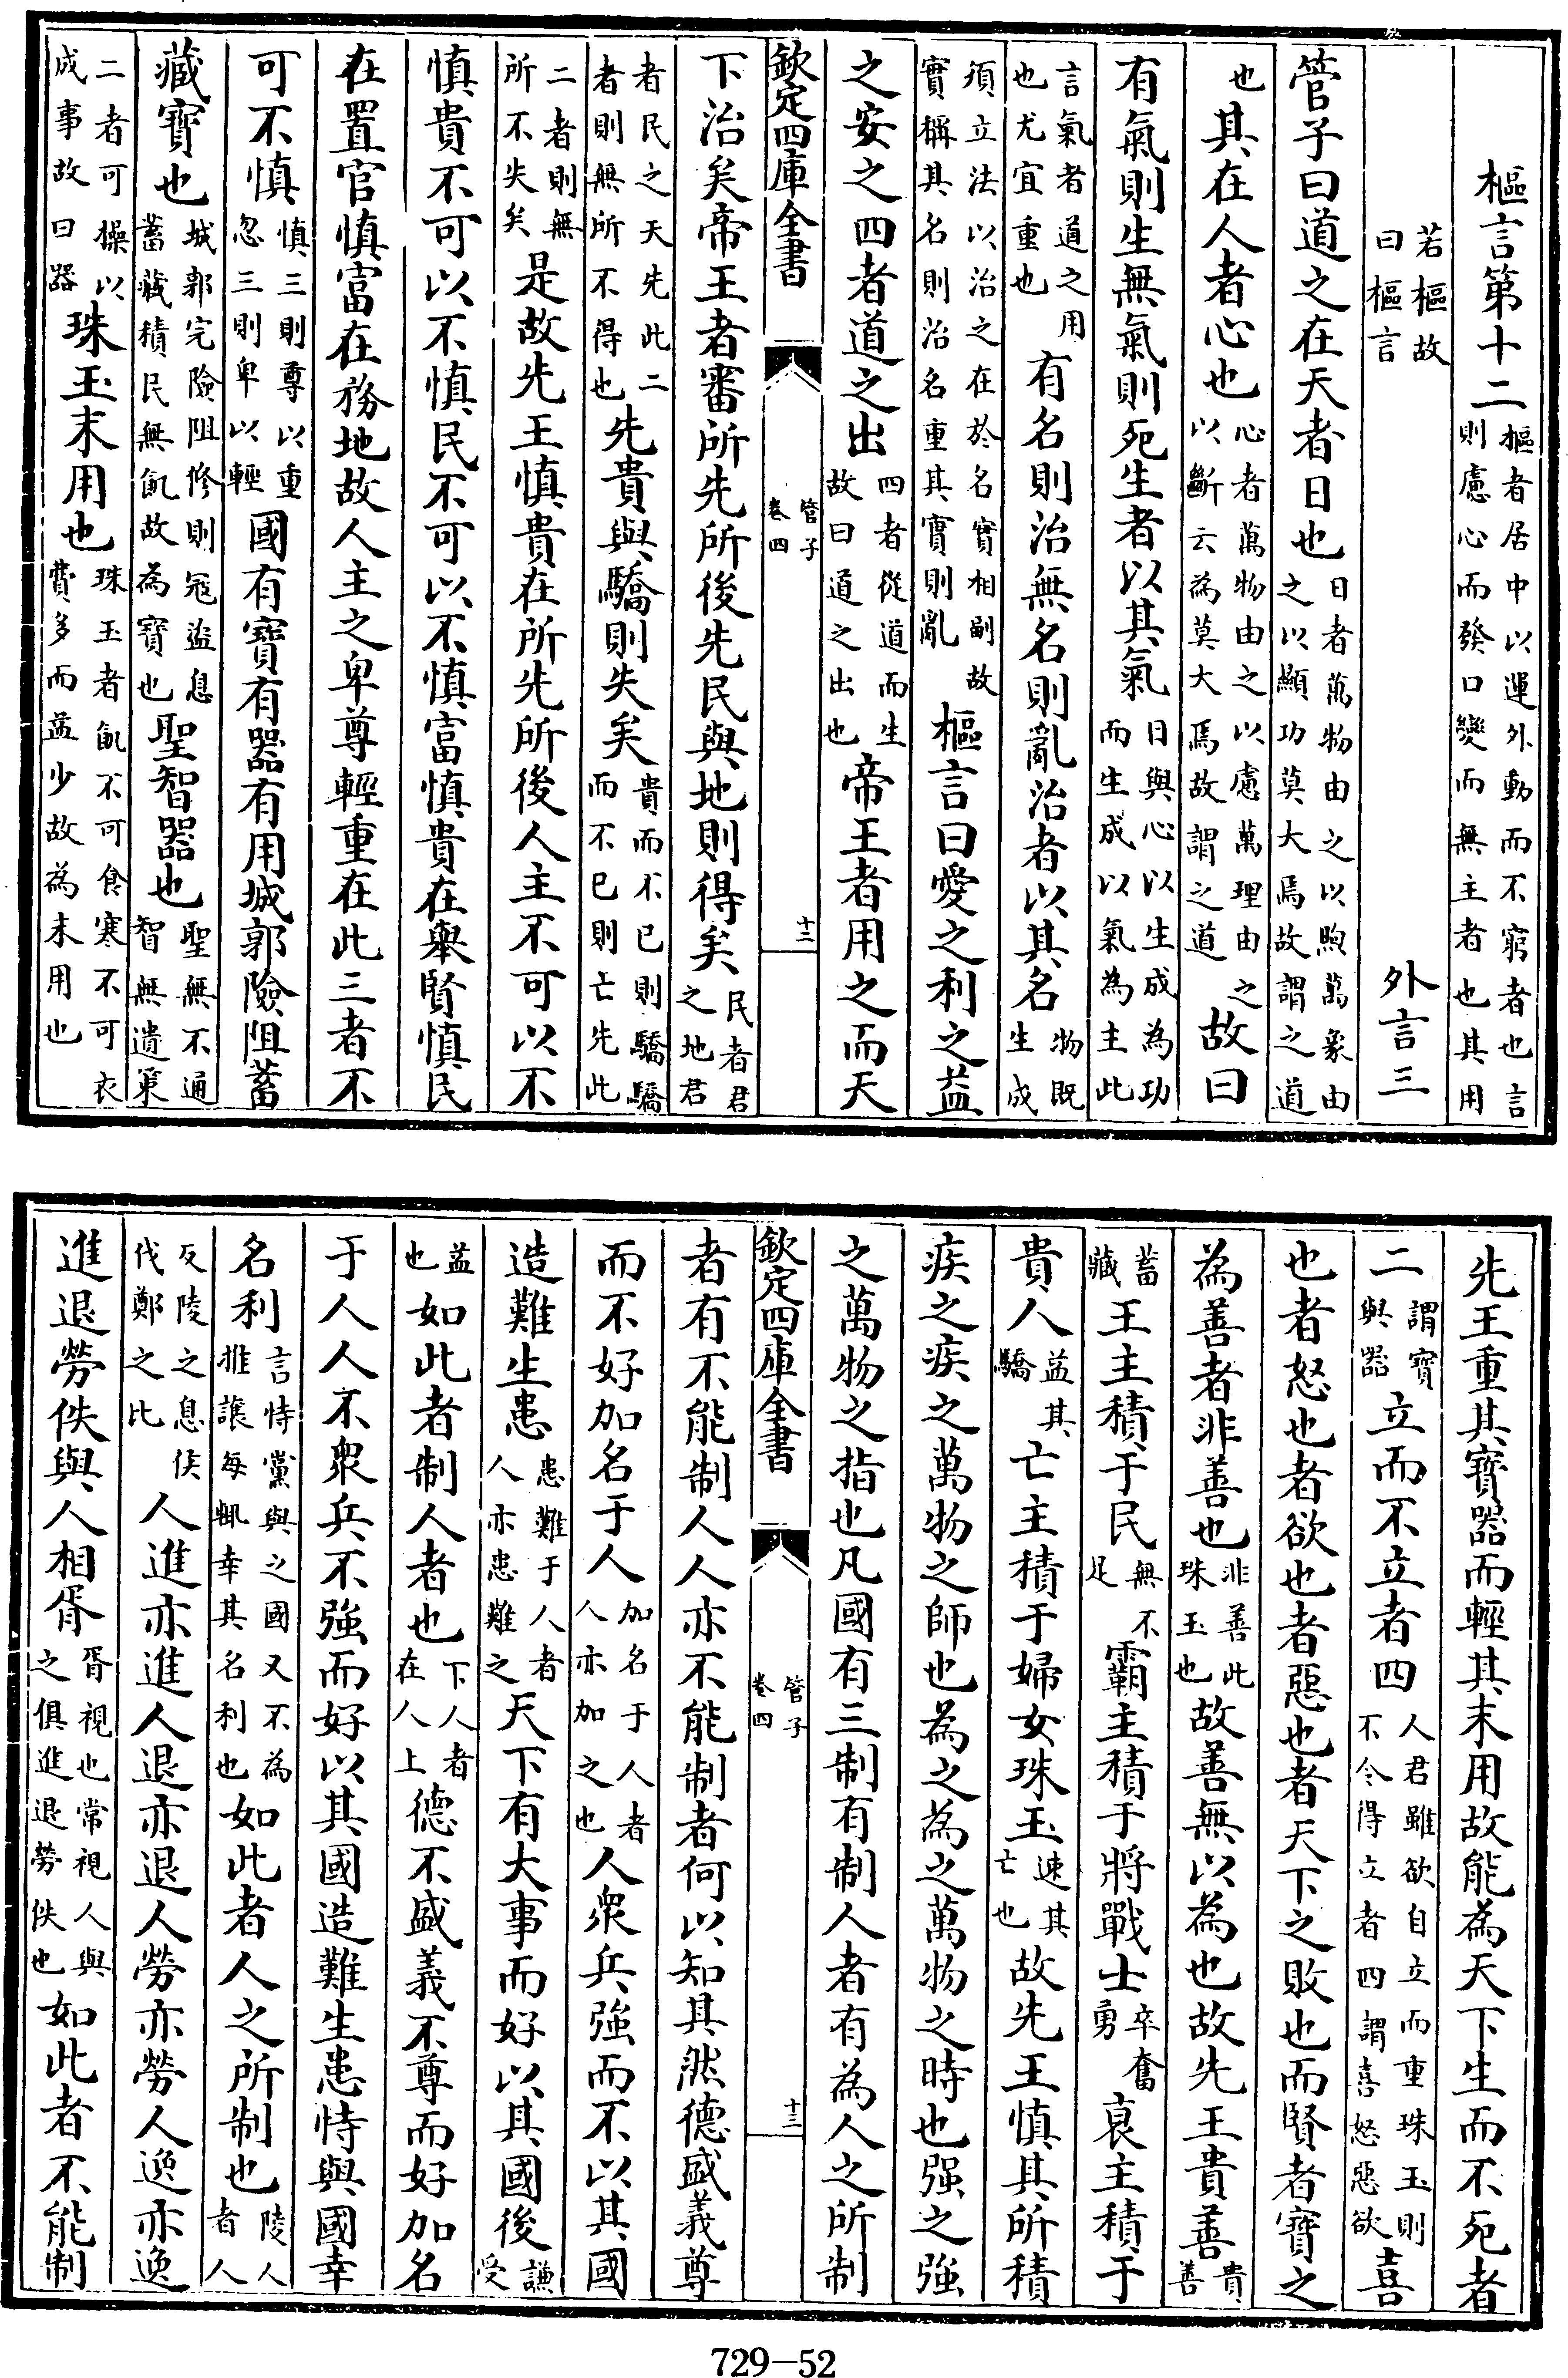 樞言第十二樞者居中以運外動而不窮者也言則慮心而發口變而無主者也其用
若樞故曰樞言　外言三
管子曰道之在天者日也日者萬物由之以煦萬象由之以顯功莫大焉故謂之道
也其在人者心也心者萬物由之以慮萬理由之以斷云為莫大焉故謂之道故曰
有氣則生無氣則死生者以其氣日與心以生成為功而生成以氣為主此
言氣者道之用也尤宜重也有名則治無名則亂治者以其名物既生成
須立法以治之在於名實相副故實稱其名則治名重其實則亂樞言曰愛之利之益
之安之四者道之出四者從道而生故曰道之出也帝王者用之而天
欽定四庫全書　管子卷四　十二
下治矣帝王者審所先所後先民與地則得矣民者君之地君
者民之天先此二者則無所不得也先貴與驕則失矣貴而不已則驕驕而不已則亡先此
二者則無所不失矣是故先王慎貴在所先所後人主不可以不
慎貴不可以不慎民不可以不慎富慎貴在舉賢慎民
在置官慎富在務地故人主之卑尊輕重在此三者不
可不慎慎三則尊以重忽三則卑以輕國有寶有器有用城郭險阻蓄
藏寶也城郭完險阻修則寇盜息蓄藏積民無飢故為寶也聖智器也聖無不通智無遺策
二者可操以成事故曰器珠玉末用也珠玉者飢不可食寒不可衣費多而益少故為末用也
先王重其寶器而輕其末用故能為天下生而不死者
二謂寶與器立而不立者四人君雖欲自立而重珠玉則不令得立者四謂喜怒惡欲喜
也者怒也者欲也者惡也者天下之敗也而賢者寶之
為善者非善也非善此珠玉也故善無以為也故先王貴善貴善
蓄藏王主積于民無不足霸主積于將戰士卒奮勇衰主積于
貴人益其驕亡主積于婦女珠玉速其亡也故先王慎其所積
疾之疾之萬物之師也為之為之萬物之時也强之强
之萬物之指也凡國有三制有制人者有為人之所制
欽定四庫全書　管子卷四　十三
者有不能制人人亦不能制者何以知其然德盛義尊
而不好加名于人加名于人者人亦加之也人衆兵强而不以其國
造難生患患難于人者人亦患難之天下有大事而好以其國後謙受
益也如此者制人者也下人者在人上德不盛義不尊而好加名
于人人不衆兵不强而好以其國造難生患恃與國幸
名利言恃黨與之國又不為推讓每輒幸其名利也如此者人之所制也陵人者人
反陵之息侯伐鄭之比人進亦進人退亦退人勞亦勞人逸亦逸
進退勞佚與人相胥胥視也常視人與之俱進退勞佚也如此者不能制
729—52